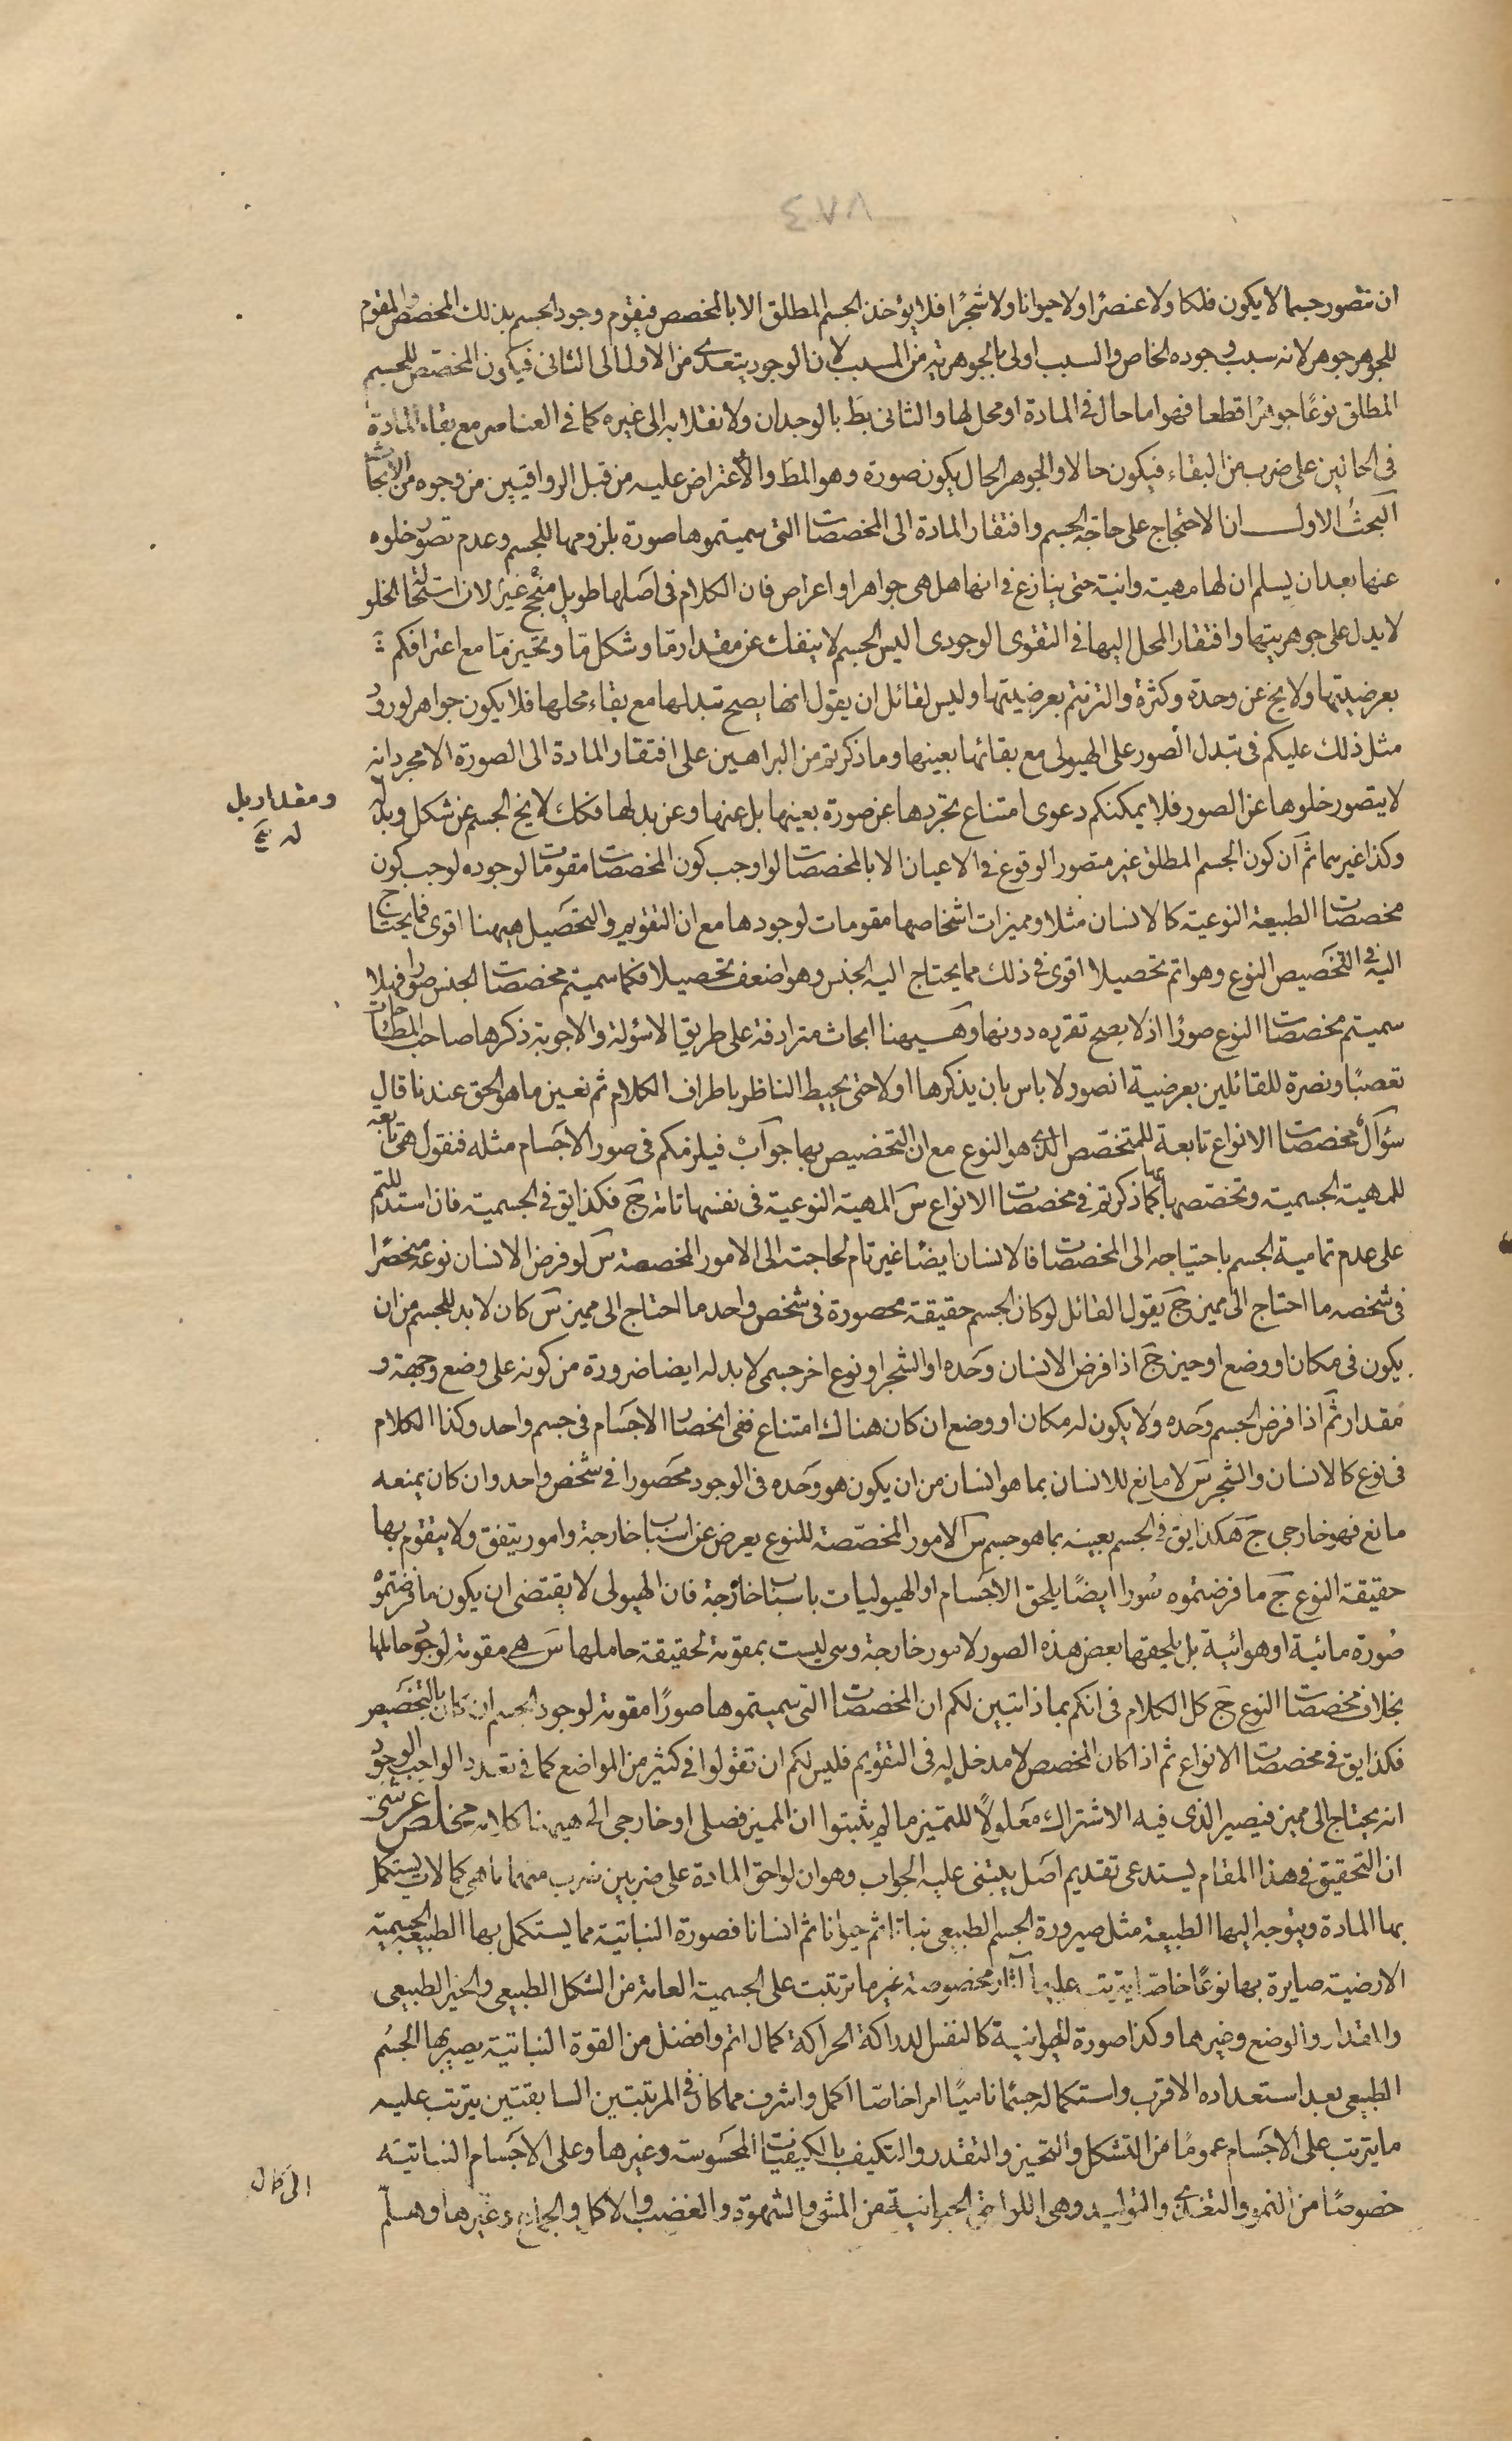 ٤٧٨
ان نتصور جسما لا يكون فلكا ولا عنصرًا ولا حيوانا ولا شجرًا فلا يؤخذ الجسم المطلق الا بالمخصص فيقوم وجود الجسم بذلك المخصص والمقوم
للجوهر جوهر لانه سبب وجوده الخاص والسبب اولى بالجوهرية من المسبب لان الوجود يتعدى من الاول الى الثانى فيكون المخصص للجسم
المطلق نوعًا جوهرًا قطعا فهو اما حال فى المادة او محل لها والثانى بط بالوجدان ولانقلابه الى غيره كما فى العناصر مع بقاء المادة
فى الحالتين على ضرب من البقاء فيكون حالا والجوهر الحال يكون صورة وهو المط والاعتراض عليه من قبل الرواقيين من وجوه من الابحاث
البحث الاول ان الاحتجاج على حاجة الجسم وافتقار المادة الى المخصصات التى سميتموها صورة بلزومها للجسم وعدم تصور خلوه
عنها بعد ان يسلم ان لها مهية وانية حتى ينازع فى انها هل هى جواهر او اعراض فان الكلام فى اصلها طويل منجح غير لان استحالة الخلو
لا يدل على جوهريتها وافتقار المحل اليها فى التقوى الوجودى اليس الجسم لا ينفك عن مقدار ما وشكل ما وتحيز ما مع اعترافكم
بعرضيتها ولا يخ عن وحدة وكثرة والتزمتم بعرضيتها وليس لقائل ان يقول انها يصح تبدلها مع بقاء محلها فلا يكون جواهر لورود
مثل ذلك عليكم فى تبدل الصور على الهيولى مع بقائها بعينها وما ذكرتم من البراهين على افتقار المادة الى الصورة الا مجرد انه
لا يتصور خلوها عن الصور فلا يمكنكم دعوى امتناع تجردها عن صورة بعينها بل عنها وعن بدلها فكك لا يخ الجسم عن شكل وبدله
ومقدار بدل
له خ
وكذا غيرهما ثم ان كون الجسم المطلق غير متصور الوقوع فى الاعيان الا بالمخصصات لو اوجب كون المخصصات مقومات لوجوده لوجب كون
مخصصات الطبيعة النوعية كالانسان مثلا ومميزات اشخاصها مقومات لوجودها مع ان التقويم والتحصيل هيهنا اقوى فما يحتاج
اليه فى التخصيص النوع وهو اتم تحصيلا اقوى فى ذلك مما يحتاج اليه الجنس وهو اضعف تحصيلا فكما سميتم مخصصات الجنس صورا فهلا
سميتم مخصصات النوع صورًا اذ لا يصح تقرره دونها وهيهنا ابحاث مترادفة على طريق الاسئولة والاجوبة ذكرها صاحب المطارحات
تعصبًا ونصرة للقائلين بعرضية الصور لا باس بان يذكرها اولا حتى يحيط الناظر باطراف الكلام ثم نعين ما هو الحق عندنا قال
سؤال مخصصات الانواع تابعة للمتخصص الذى هو النوع مع ان التخصيص بها جواب فيلزمكم فى صور الاجسام مثله فنقول هى تابعة
للمهية الجسمية وتخصصها بها كما ذكرتم فى مخصصات الانواع س المهية النوعية فى نفسها تامة ج فكذا يق فى الجسمية فان استدللتم
على عدم تمامية الجسم باحتياجه الى المخصصات فالانسان ايضا غير تام لحاجته الى الامور المخصصة س لو فرض الانسان نوعه منحصرًا
فى شخصه ما احتاج الى مميز ج يقول القائل لو كان الجسم حقيقة محصورة فى شخص واحد ما احتاج الى مميز س كان لا بد للجسم من ان
يكون فى مكان او وضع او حيز ج اذا فرض الانسان وحده او الشجر او نوع اخر جسمى لا بد له ايضا ضرورة من كونه على وضع وجهة و
مقدار ثم اذا فرض الجسم وحده ولا يكون له مكان او وضع ان كان هناك امتناع ففى انحصار الاجسام فى جسم واحد وكذا الكلام
فى نوع كالانسان والشجر س لا مانع للانسان بما هو انسان من ان يكون هو وحده فى الوجود محصورا فى شخص واحد وان كان يمنعه
مانع فهو خارجى ج هكذا يق فى الجسم بعينه بما هو جسم س الامور المخصصة للنوع يعرض عن اسباب خارجة وامور يتفق ولا يتقوم بها
حقيقة النوع ج ما فرضتموه صورا ايضًا يلحق الاجسام او الهيوليات باسباب خارجة فان الهيولى لا يقتضى ان يكون ما فرضتموه
صورة مائية او هوائية بل يلحقها بعض هذه الصور لامور خارجة وهى ليست بمقومة لحقيقة حاملها س هى مقومة لوجود حاملها
بخلاف مخصصات النوع ج كل الكلام فى انكم بماذا تبين لكم ان المخصصات التى سميتموها صورًا مقومة لوجود الجسم ان كان بالتخصيص
فكذا يق فى مخصصات الانواع ثم اذا كان المخصص لا مدخل له فى التقويم فليس لكم ان تقولوا فى كثير من المواضع كما فى تعدد الواجب الوجود
انه يحتاج الى مميز فيصير الذى فيه الاشتراك معلولًا للمتميز ما لم يثبتوا ان المميز فصلى او خارجى الى هيهنا كلامه مخلص عرشى
ان التحقيق فى هذا المقام يستدعى تقديم اصل يبتنى عليه الجواب وهو ان لواحق المادة على ضربين ضرب منهما ما هى كمالات يستكمل
بها المادة ويتوجه اليها الطبيعة مثل صيرورة الجسم الطبيعى نباتا ثم حيوانا ثم انسانا فصورة النباتية مما يستكمل بها الطبيعة الجسمية
الارضية صايرة بها نوعًا خاصا يترتب عليها آثار مخصوصة غير ما ترتبت على الجسمية العامة من الشكل الطبيعى والحيز الطبيعى
والمقدار والوضع وغيرهما وكذا صورة الحيوانية كالنفس الدراكة الحراكة كمال اتم وافضل من القوة النباتية يصير بها الجسم
الطبيعى بعد استعداده الاقرب واستكماله جسمًا ناميًا امرا خاصا اكمل واشرف مما كان فى المرتبتين السابقتين يترتب عليه
ما يترتب على الاجسام عمومًا من التشكل والتحيز والتقدر والتكيف بالكيفيات المحسوسة وغيرها وعلى الاجسام النباتية
خصوصًا من النمو والتغذى والتوليد وهى اللواحق الحيوانية من المشى والشهوة والغضب والاكل والجماع وغيرها وهلم
الى كمال